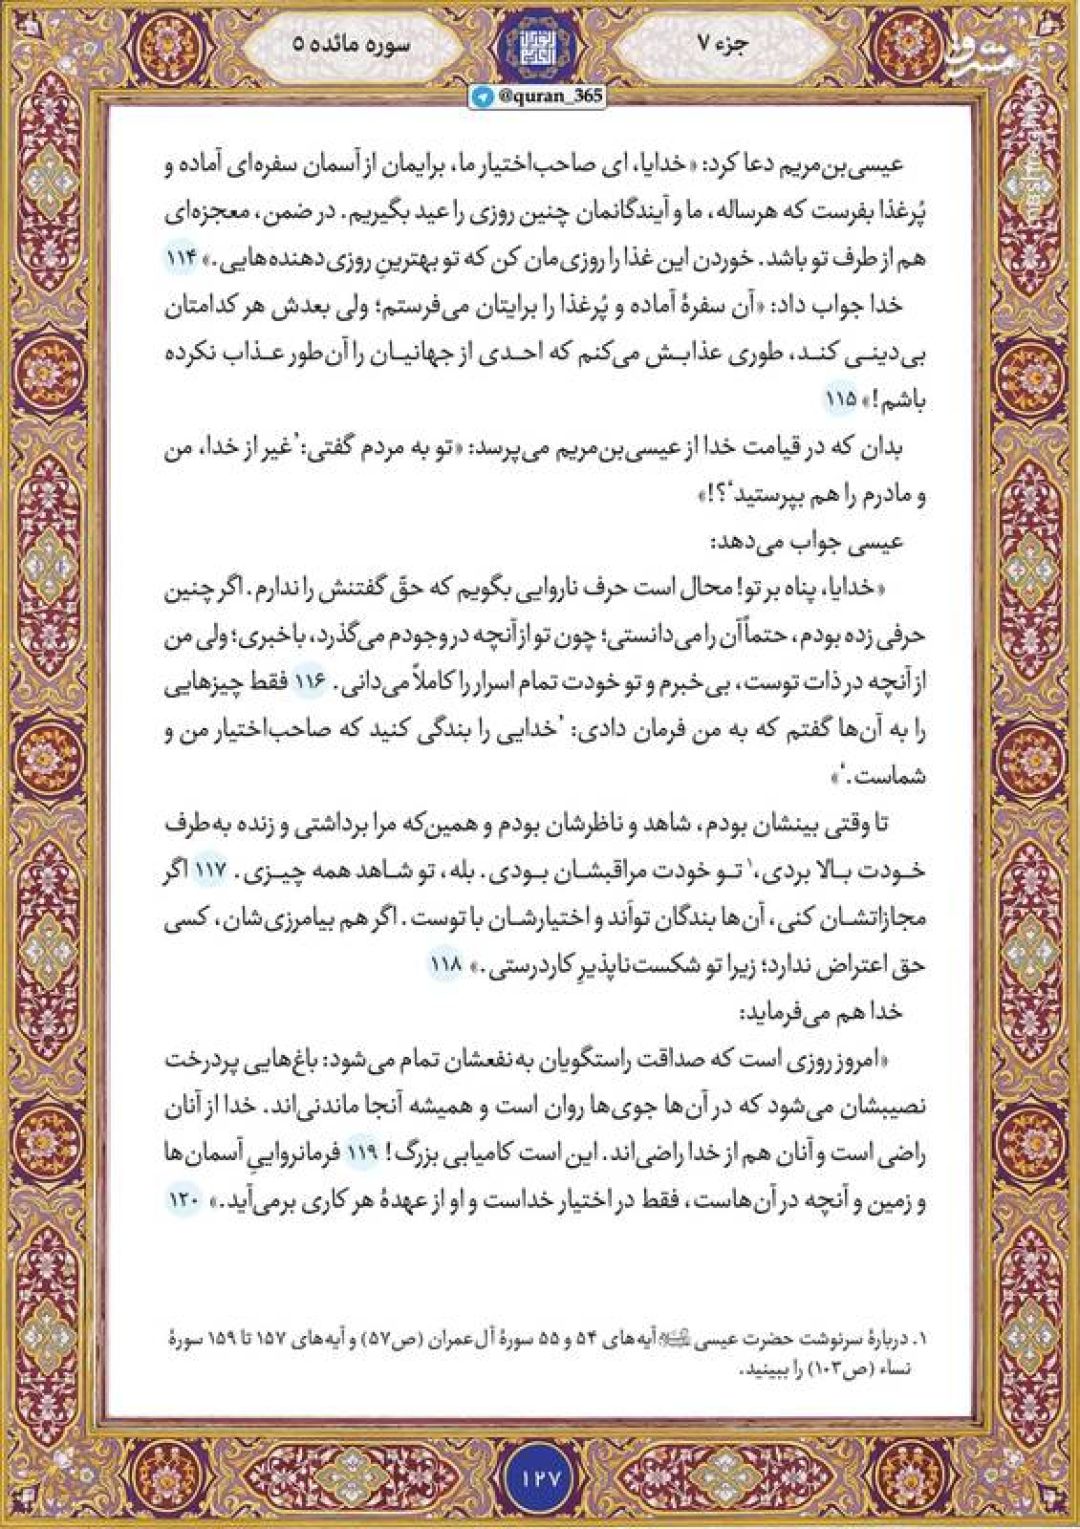 جزء ۷
سوره مائده ۵
مشرق
@quran_365
عیسی‌بن‌مریم دعا کرد: «خدایا، ای صاحب‌اختیار ما، برایمان از آسمان سفره‌ای آماده و
پُرغذا بفرست که هرساله، ما و آیندگانمان چنین روزی را عید بگیریم. در ضمن، معجزه‌ای
هم از طرف تو باشد. خوردن این غذا را روزی‌مان کن که تو بهترینِ روزی‌دهنده‌هایی.» ۱۱۴
خدا جواب داد: «آن سفرهٔ آماده و پُرغذا را برایتان می‌فرستم؛ ولی بعدش هر کدامتان
بی‌دینی کند، طوری عذابش می‌کنم که احدی از جهانیان را آن‌طور عذاب نکرده
باشم!» ۱۱۵
بدان که در قیامت خدا از عیسی‌بن‌مریم می‌پرسد: «تو به مردم گفتی: ’غیر از خدا، من
و مادرم را هم بپرستید‘؟!»
عیسی جواب می‌دهد:
«خدایا، پناه بر تو! محال است حرف ناروایی بگویم که حقّ گفتنش را ندارم. اگر چنین
حرفی زده بودم، حتماً آن را می‌دانستی؛ چون تو از آنچه در وجودم می‌گذرد، باخبری؛ ولی من
از آنچه در ذات توست، بی‌خبرم و تو خودت تمام اسرار را کاملاً می‌دانی. ۱۱۶ فقط چیزهایی
را به آن‌ها گفتم که به من فرمان دادی: ’خدایی را بندگی کنید که صاحب‌اختیار من و
شماست.‘»
تا وقتی بینشان بودم، شاهد و ناظرشان بودم و همین‌که مرا برداشتی و زنده به‌طرف
خودت بالا بردی،۱ تو خودت مراقبشان بودی. بله، تو شاهد همه چیزی. ۱۱۷ اگر
مجازاتشان کنی، آن‌ها بندگان تواَند و اختیارشان با توست. اگر هم بیامرزی‌شان، کسی
حق اعتراض ندارد؛ زیرا تو شکست‌ناپذیرِ کاردرستی.» ۱۱۸
خدا هم می‌فرماید:
«امروز روزی است که صداقت راستگویان به‌نفعشان تمام می‌شود: باغ‌هایی پردرخت
نصیبشان می‌شود که در آن‌ها جوی‌ها روان است و همیشه آنجا ماندنی‌اند. خدا از آنان
راضی است و آنان هم از خدا راضی‌اند. این است کامیابی بزرگ! ۱۱۹ فرمانرواییِ آسمان‌ها
و زمین و آنچه در آن‌هاست، فقط در اختیار خداست و او از عهدهٔ هر کاری برمی‌آید.» ۱۲۰
۱. دربارهٔ سرنوشت حضرت عیسی آیه‌های ۵۴ و ۵۵ سورهٔ آل‌عمران (ص۵۷) و آیه‌های ۱۵۷ تا ۱۵۹ سورهٔ
نساء (ص۱۰۳) را ببینید.
۱۲۷